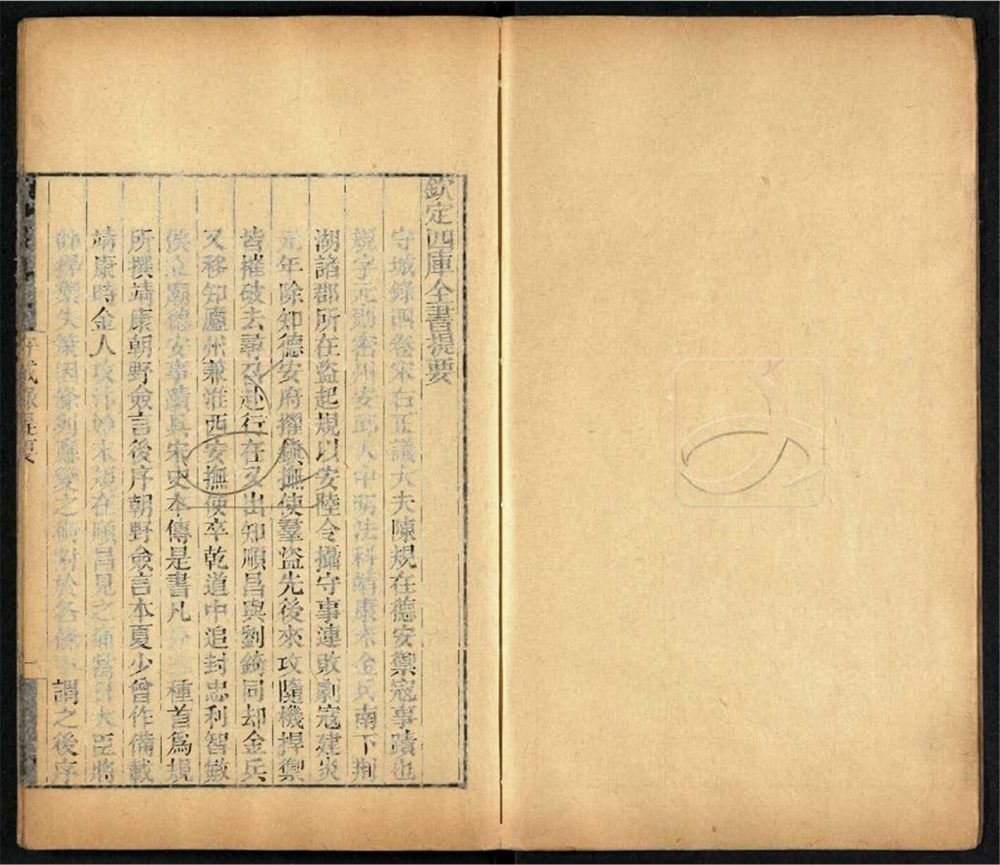 欽定四庫全書提要
守城錄四卷宋右正議大夫陳規在德安禦寇事蹟也
規字元則密州安邱人中明法科靖康末金兵南下荆
湖諸郡所在盜起規以安陸令攝守事連敗劇寇建炎
元年除知德安府擢鎮撫使羣盜先後來攻隨機捍禦
皆摧破去尋召赴行在又出知順昌與劉錡同却金兵
又移知廬州兼淮西安撫使卒乾道中追封忠利智敏
侯立廟德安事蹟具宋史本傳是書凡分三種首為規
所撰靖康朝野僉言後序朝野僉言本夏少曾作備載
靖康時金人攻汴始末規在順昌見之痛當日大臣將
帥捍禦失策因條列應變之術附於各條下謂之後序
守城錄提要
一